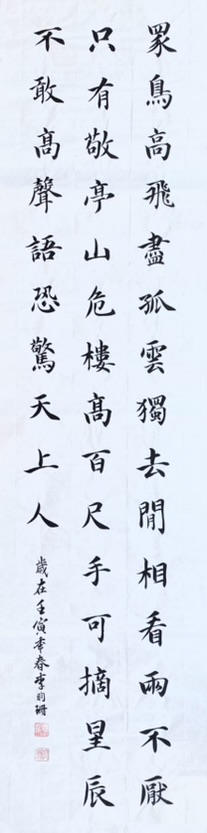 眾鳥高飛盡孤雲獨去閒相看兩不厭
只有敬亭山危樓高百尺手可摘星辰
不敢高聲語恐驚天上人
歲在壬寅季春李明珊